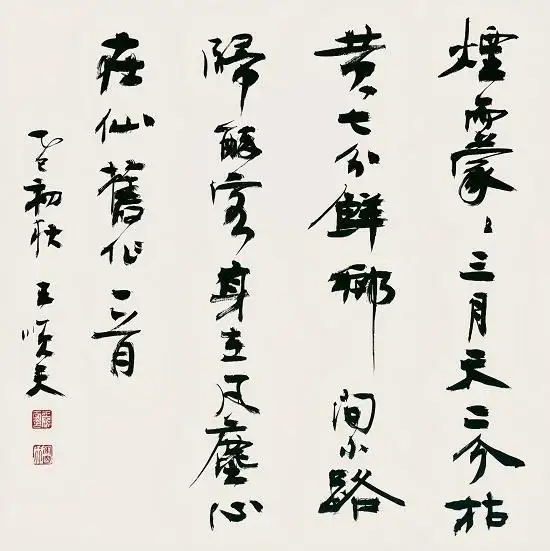 煙雨蒙々三月天二分枯
黄七分鮮鄉間小路
歸醉客身在凡塵心
在仙舊作一首
乙巳初秋 王順